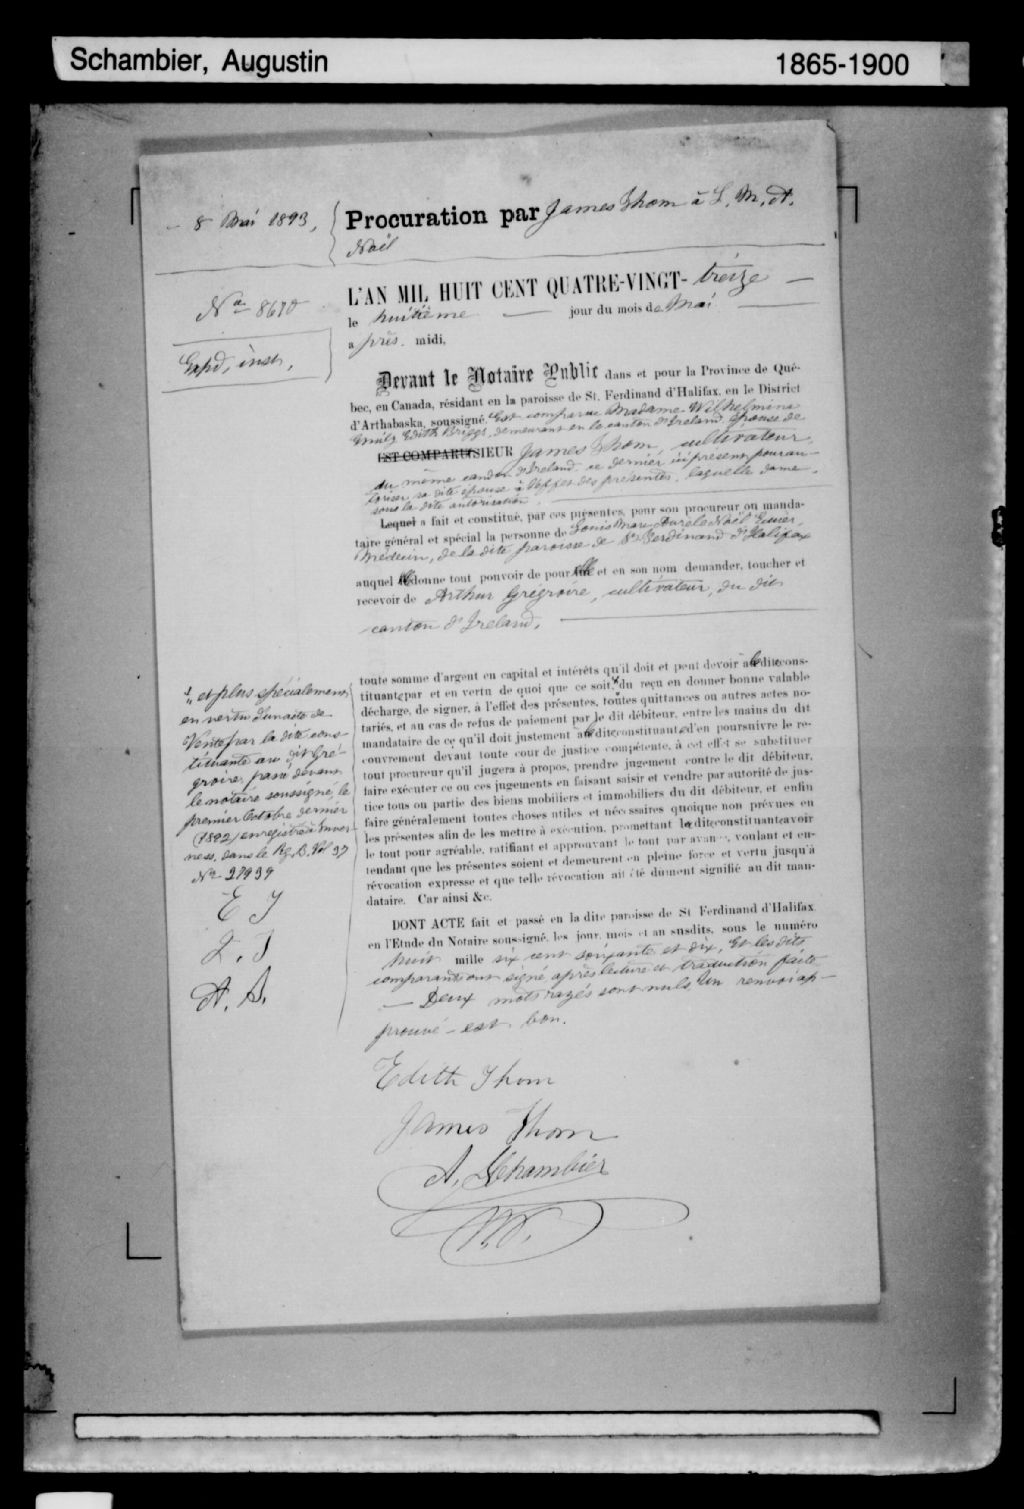 Schambier, Augustin
1865-1900
- 8 Mai 1893,
Procuration par James Thom à L. M. A.
Noël
No 8670
Expd, inst,
L'AN MIL HUIT CENT QUATRE-VINGT- treize —
le huitième — jour du mois de Mai —
a près. midi,
Devant le Notaire Public dans et pour la Province de Qué-
bec, en Canada, résidant en la paroisse de St. Ferdinand d'Halifax, en le District
d'Arthabaska, soussigné. Est comparue Madame Wilhelmina
Emily Edith Briggs, demeurant en le canton d'Ireland, épouse de
EST COMPARU SIEUR James Thom, cultivateur,
du même canton d'Ireland, ce dernier ici présent pour au-
toriser sa dite épouse à l'effet des présentes, laquelle dame,
sous la dite autorisation.
Lequel a fait et constitué, par ces présentes, pour son procureur ou manda-
taire général et spécial la personne de Louis Marc Aurèle Noël Ecuier,
Médecin, de la dite paroisse de St Ferdinand d'Halifax
auquel elle donne tout pouvoir de pour elle et en son nom demander, toucher et
recevoir de Arthur Grégroire, cultivateur, du dit
canton d'Ireland.
toute somme d'argent en capital et intérêts qu'il doit et peut devoir à la dite cons-
tituante par et en vertu de quoi que ce soit, du reçu en donner bonne valable
décharge, de signer, à l'effet des présentes, toutes quittances ou autres actes no-
tariés, et au cas de refus de paiement par le dit débiteur, entre les mains du dit
mandataire de ce qu'il doit justement à la dite constituante d'en poursuivre le re-
couvrement devant toute cour de justice compétente, à cet effet se substituer
tout procureur qu'il jugera à propos, prendre jugement contre le dit débiteur,
faire exécuter ce ou ces jugements en faisant saisir et vendre par autorité de jus-
tice tous ou partie des biens mobiliers et immobiliers du dit débiteur, et enfin
faire généralement toutes choses utiles et nécessaires quoique non prévues en
les présentes afin de les mettre à exécution, promettant la dite constituante avoir
le tout pour agréable, ratifiant et approuvant le tout par avance, voulant et en-
tendant que les présentes soient et demeurent en pleine force et vertu jusqu'à
révocation expresse et que telle révocation ait été dument signifié au dit man-
dataire. Car ainsi &c.
et plus spécialement
en vertu d'un acte de
Vente par la dite cons-
tituante au dit Gré-
groire, passé devant
le notaire soussigné, le
premier Octobre dernier
(1892) enregistré à Inver-
ness, dans le Rg. B. Vol 37
No 27939
E T
J. T
A. S.
DONT ACTE fait et passé en la dite paroisse de St Ferdinand d'Halifax
en l'Etude du Notaire soussigné, les jour, mois et an susdits, sous le numéro
huit mille six cent soixante et dix, Et les dits
comparants ont signé après lecture et traduction faite
— Deux mots rayés sont nuls, Un renvoi ap-
prouvé — est bon.
Edith Thom
James Thom
A. Schambier
N.P.